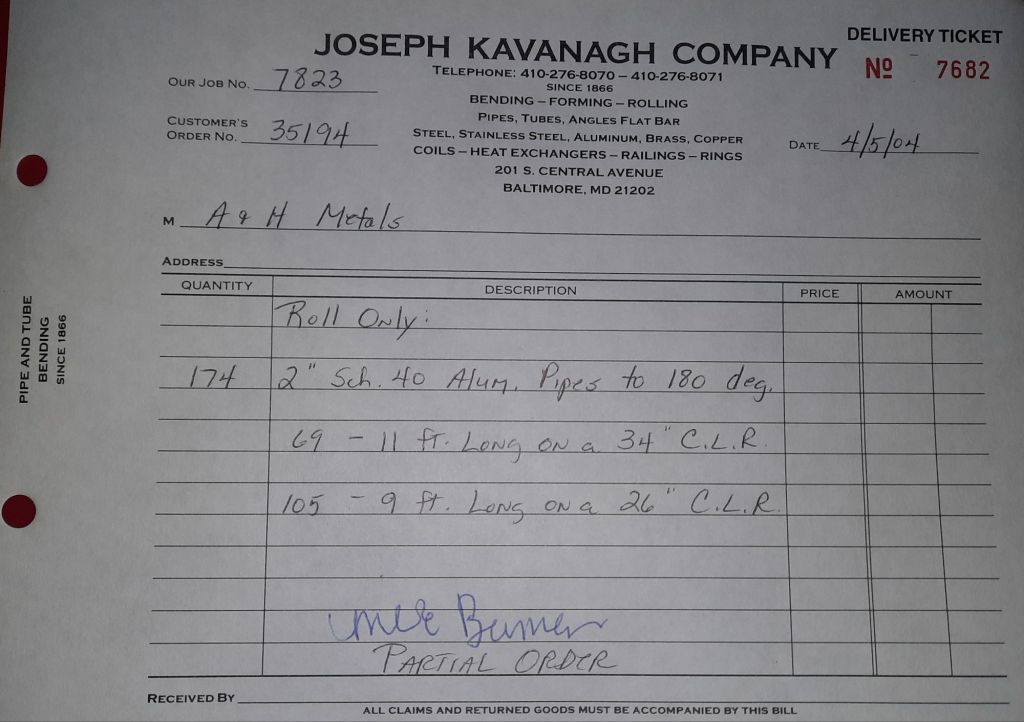 DELIVERY TICKET
JOSEPH KAVANAGH COMPANY
Nº 7682
OUR JOB NO. 7823
TELEPHONE: 410-276-8070 – 410-276-8071
SINCE 1866
BENDING – FORMING – ROLLING
PIPES, TUBES, ANGLES FLAT BAR
CUSTOMER'S
ORDER NO. 35194
STEEL, STAINLESS STEEL, ALUMINUM, BRASS, COPPER
DATE 4/5/04
COILS – HEAT EXCHANGERS – RAILINGS – RINGS
201 S. CENTRAL AVENUE
BALTIMORE, MD 21202
M A & H Metals
ADDRESS
QUANTITY DESCRIPTION PRICE AMOUNT
Roll Only:
174 2" Sch. 40 Alum. Pipes to 180 deg.
69 - 11 ft. Long on a 34" C.L.R.
105 - 9 ft. Long on a 26" C.L.R.
PARTIAL ORDER
RECEIVED BY
ALL CLAIMS AND RETURNED GOODS MUST BE ACCOMPANIED BY THIS BILL
PIPE AND TUBE
BENDING
SINCE 1866